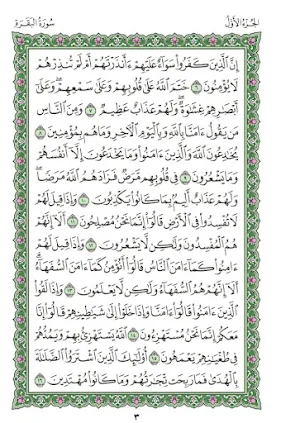 الجزء الأول
سورة البقرة
إن الذين كفروا سواء عليهم ءأنذرتهم أم لم تنذرهم
لا يؤمنون ٦ ختم الله على قلوبهم وعلى سمعهم وعلى
أبصرهم غشوة ولهم عذاب عظيم ٧ ومن الناس
من يقول ءامنا بالله وباليوم الأخر وما هم بمؤمنين ٨
يخدعون الله والذين ءامنوا وما يخدعون إلا أنفسهم
وما يشعرون ٩ في قلوبهم مرض فزادهم الله مرضا
ولهم عذاب أليم بما كانوا يكذبون ١٠ وإذا قيل لهم
لا تفسدوا في الأرض قالوا إنما نحن مصلحون ١١ ألا إنهم
هم المفسدون ولكن لا يشعرون ١٢ وإذا قيل لهم
ءامنوا كما ءامن الناس قالوا أنؤمن كما ءامن السفهاء
ألا إنهم هم السفهاء ولكن لا يعلمون ١٣ وإذا لقوا
الذين ءامنوا قالوا ءامنا وإذا خلوا إلى شيطينهم قالوا إنا
معكم إنما نحن مستهزءون ١٤ الله يستهزئ بهم ويمدهم
في طغينهم يعمهون ١٥ أولئك الذين اشتروا الضللة
بالهدى فما ربحت تجرتهم وما كانوا مهتدين ١٦
٣